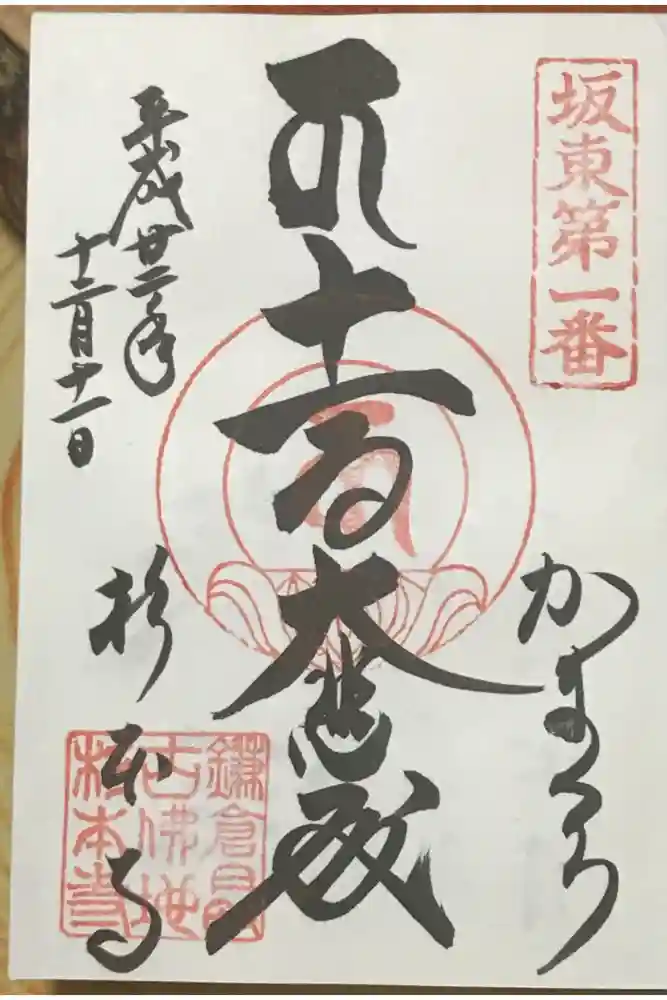 坂東第一番
かまくら
十一面大悲殿
平成廿二年
十二月十一日
杉本寺
鎌倉最
古佛地
杉本寺